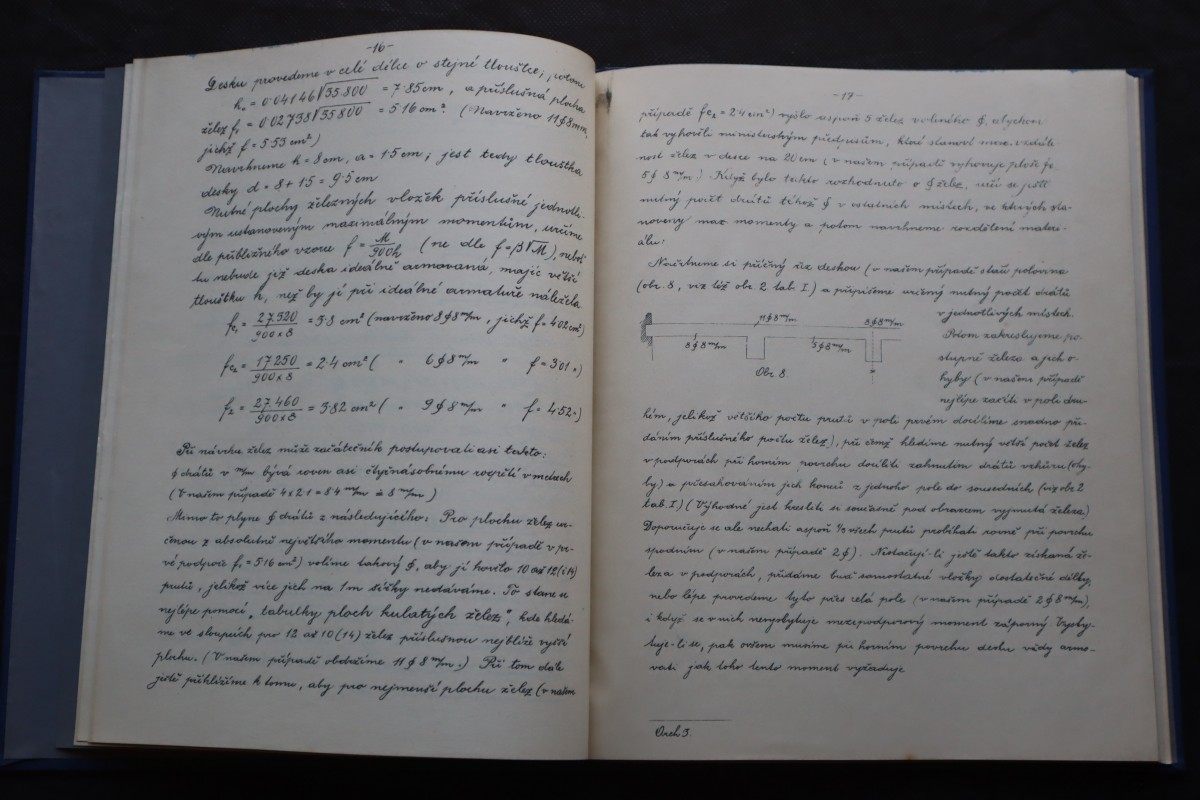 -16-
Desku provedeme v celé délce o stejné tloušťce; potom
h₁ = 0·04146√35.800 = 7·85cm, a příslušná plocha
želez f₁ = 0·02738√35800 = 5·16 cm². (Navrženo 11ϕ8mm,
jichž f = 5·53 cm²)
Navrhneme h = 8cm, a = 1·5cm; jest tedy tloušťka
desky d = 8 + 1·5 = 9·5 cm
Nutné plochy železných vložek příslušné jednotli-
vým ustanoveným maximálným momentům, určíme
dle přibližného vzorce f = M/900h (ne dle f = β√M), neboť
tu nebude již deska ideálně armovaná, majíc větší
tloušťku h, než by jí při ideálné armatuře náležela
fe₁ = 27.320/900×8 = 3·8 cm² (navrženo 8ϕ8 m/m, jichž f = 4·02 cm²)
fe₂ = 17250/900×8 = 2·4 cm² ( " 6ϕ8 m/m " f = 3·01 ")
f₂ = 27.460/900×8 = 3·82 cm² ( " 9ϕ8 m/m " f = 4·52 ")
Při návrhu želez může začátečník postupovati asi takto:
ϕ drátů v m/m bývá roven asi čtyřnásobnému rozpětí v metrech
(V našem případě 4×2·1 = 8·4 m/m à 8 m/m)
Mimo to plyne ϕ drátů z následujícího: Pro plochu želez ur-
čenou z absolutně největšího momentu (v našem případě v pr-
vé podpoře f₁ = 5·16 cm²) volíme takový ϕ, aby jí hovělo 10 až 12 (i 14)
prutů, jelikož více jich na 1m šířky nedáváme. To stane se
nejlépe pomocí „tabulky ploch kulatých želez", kde hledá-
me ve sloupcích pro 12 až 10 (14) želez příslušnou nejblíže vyšší
plochu. (V našem případě obdržíme 11ϕ8 m/m.) Při tom dále
ještě přihlížíme k tomu, aby pro nejmenší plochu želez (v našem
-17-
případě fe₂ = 2·4 cm²) vyšlo aspoň 5 želez voleného ϕ, abychom
tak vyhověli ministerským předpisům, které stanoví max. vzdále-
nost želez v desce na 20cm (v našem případě vyhovuje ploše fe₂
5ϕ8 m/m) Když bylo takto rozhodnuto o ϕ želez, určí se počet
nutný počet drátů téhož ϕ v ostatních místech, ve kterých sta-
noveny max momenty a potom navrhneme rozdělení materi-
álu:
Načrtneme si příčný řez deskou (v našem případě stačí polovina
(obr. 8, viz též obr. 2 tab. I) a připíšeme určený nutný počet drátů
v jednotlivých místech.
11ϕ8 m/m
8ϕ8 m/m
8ϕ8 m/m
5ϕ8 m/m
Obr 8
Potom zakreslujeme po-
stupně železa a jich o-
hyby (v našem případě
nejlépe začíti v poli dru-
hém, jelikož většího počtu prutů v poli prvém docílíme snadno při-
dáním příslušného počtu želez), při čemž hledíme nutný větší počet želez
v podporách při horním povrchu docíliti zahnutím drátů vzhůru (ohy-
by) a přesahováním jich konců z jednoho pole do sousedních (viz obr 2
tab. I) (Výhodné jest kresliti si současně pod obrazem vyjmutá železa)
Doporučuje se ale nechati aspoň ⅓ všech prutů probíhati rovně při povrchu
spodním (v našem případě 2ϕ). Nestačují-li ještě takto získaná že-
leza v podporách, přidáme buď samostatné vložky dostatečné délky,
nebo lépe provedeme tyto přes celá pole (v našem případě 2ϕ8 m/m),
i když se v nich nevyskytuje mezipodporový moment záporný. Vysky-
tuje-li se, pak ovšem musíme při horním povrchu desku vždy armo-
vati jak toho tento moment vyžaduje
Arch 3.